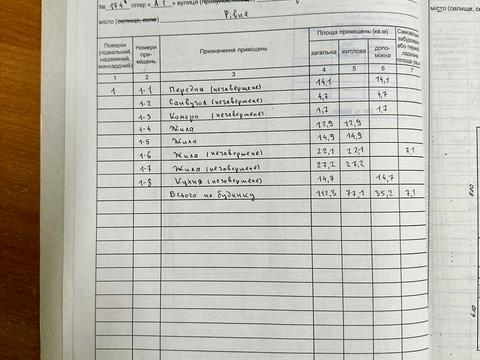 № 174 літер « А1 » вулиця
місто (селище, село) Рівне
місто (селище,
Поверхи (підвальний, надземний, мансардний) Номери приміщень Призначення приміщень Площа приміщень (кв.м) загальна житлова допоміжна
1 2 3 4 5 6 7
1 1-1 Передня (незавершене) 14,1 14,1
1-2 Санвузол (незавершене) 4,7 4,7
1-3 Комора (незавершене) 1,7 1,7
1-4 Жила 12,9 12,9
1-5 Жила 14,9 14,9
1-6 Жила (незавершене) 22,1 22,1 7,1
1-7 Жила (незавершене) 27,2 27,2
1-8 Кухня (незавершене) 14,7 14,7
Всього по будинку 112,3 77,1 35,2 7,1